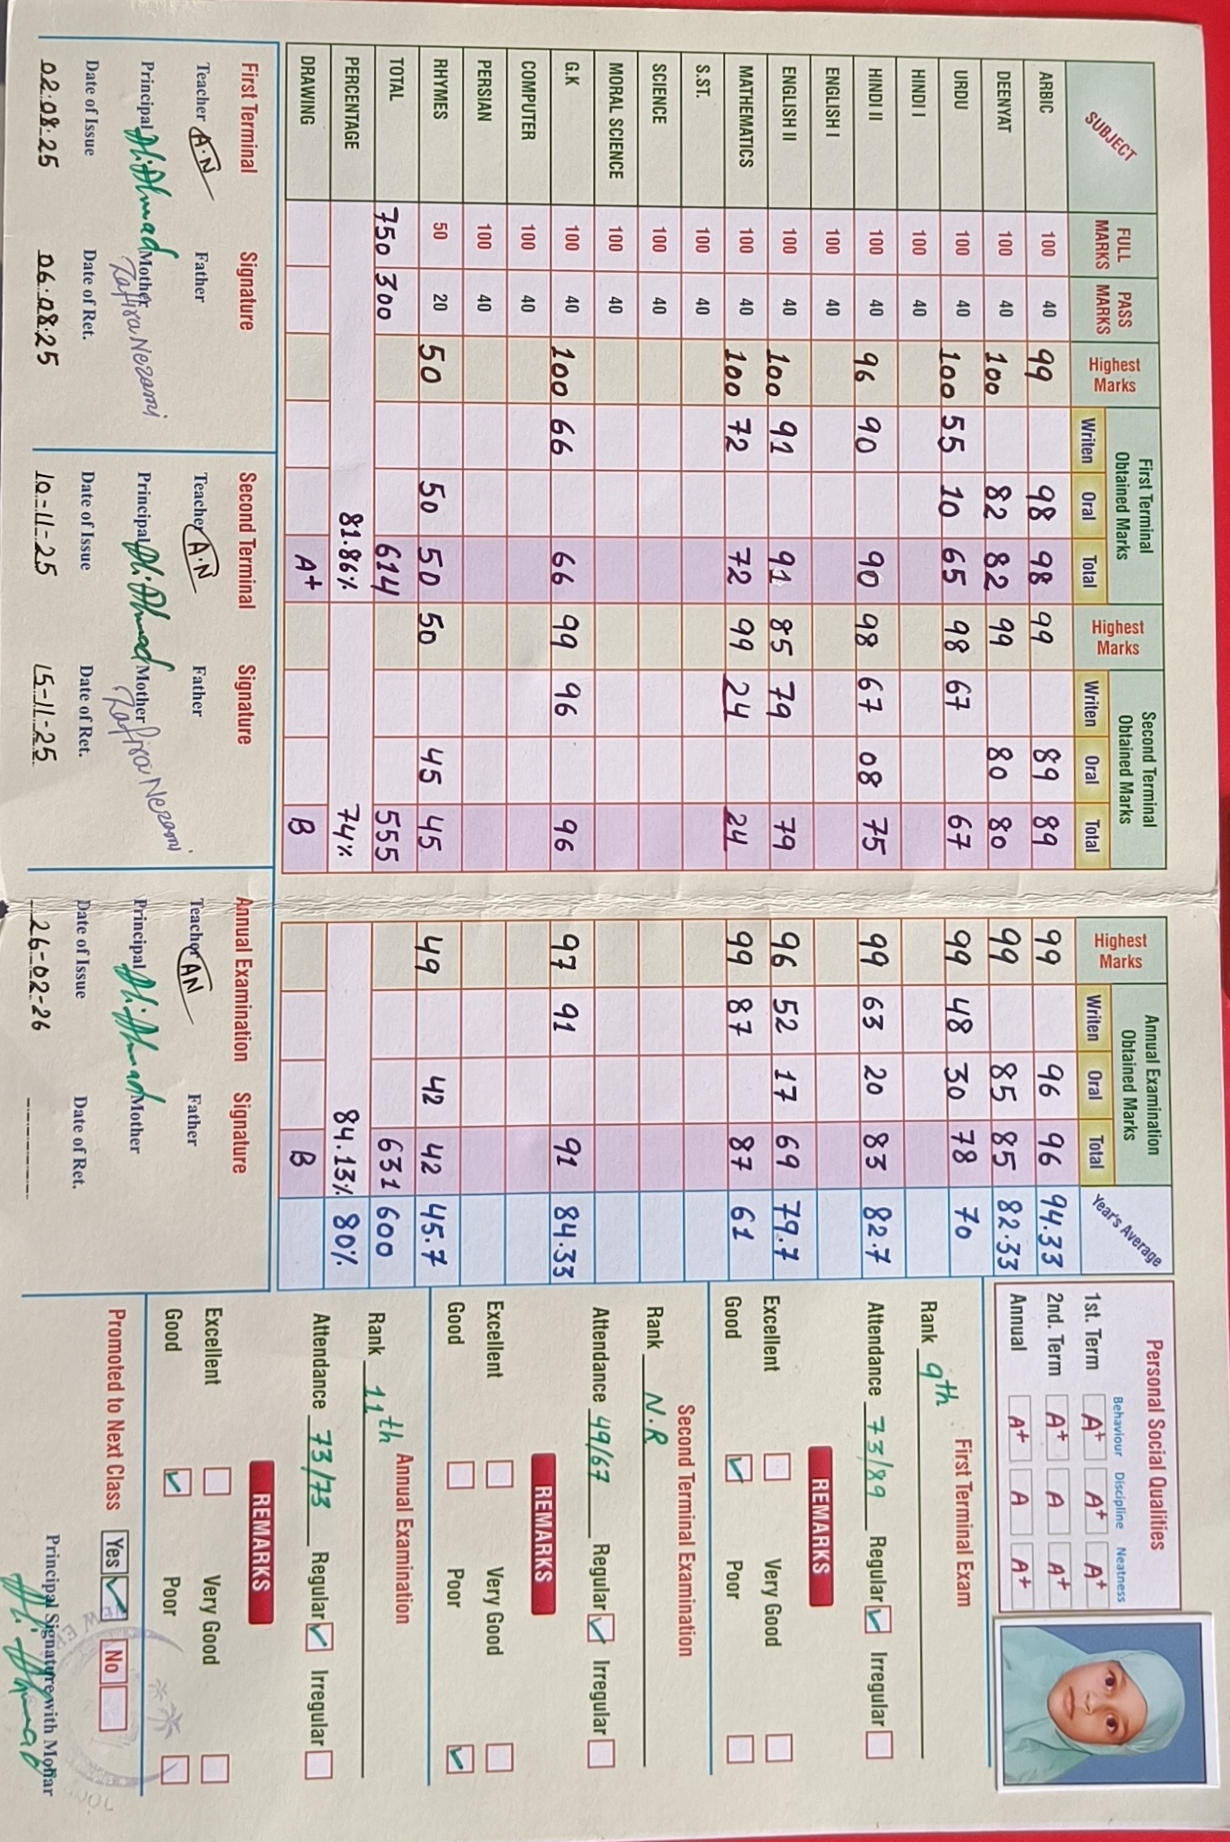 SUBJECT FULL MARKS PASS MARKS Highest Marks First Terminal Obtained Marks Writen Oral Total Highest Marks Second Terminal Obtained Marks Writen Oral Total Highest Marks Annual Examination Obtained Marks Writen Oral Total Year's Average
ARBIC 100 40 99 98 98 99 89 89 99 96 96 94.33
DEENYAT 100 40 100 82 82 99 80 80 99 85 85 82.33
URDU 100 40 100 55 10 65 98 67 67 99 48 30 78 70
HINDI I 100 40
HINDI II 100 40 96 90 90 98 67 08 75 99 63 20 83 82.7
ENGLISH I 100 40
ENGLISH II 100 40 100 91 91 85 79 79 96 52 17 69 79.7
MATHEMATICS 100 40 100 72 72 99 24 24 99 87 87 61
S.ST. 100 40
SCIENCE 100 40
MORAL SCIENCE 100 40
G.K 100 40 100 66 66 99 96 96 97 91 91 84.33
COMPUTER 100 40
PERSIAN 100 40
RHYMES 50 20 50 50 50 50 45 45 49 42 42 45.7
TOTAL 750 300 614 555 631 600
PERCENTAGE 81.86% 74% 84.13% 80%
DRAWING A+ B B
First Terminal Signature
Teacher A.N Father
Principal Ali Ahmad Mother Zafira Nezami
Date of Issue Date of Ret.
02.08.25 06.08.25
Second Terminal Signature
Teacher A.N Father
Principal Ali Ahmad Mother Zafira Nezami
Date of Issue Date of Ret.
10-11-25 15-11-25
Annual Examination Signature
Teacher AN Father
Principal Ali Ahmad Mother
Date of Issue Date of Ret.
26-02-26
Personal Social Qualities
Behaviour Discipline Neatness
1st. Term A+ A+ A+
2nd. Term A+ A A+
Annual A+ A A+
First Terminal Exam
Rank 9th
Attendance 73/89 Regular Irregular
REMARKS
Excellent Very Good
Good Poor
Second Terminal Examination
Rank N.R
Attendance 49/67 Regular Irregular
REMARKS
Excellent Very Good
Good Poor
Annual Examination
Rank 11th
Attendance 73/73 Regular Irregular
REMARKS
Excellent Very Good
Good Poor
Promoted to Next Class Yes No
Principal Signature with Mohar
Ali Ahmad